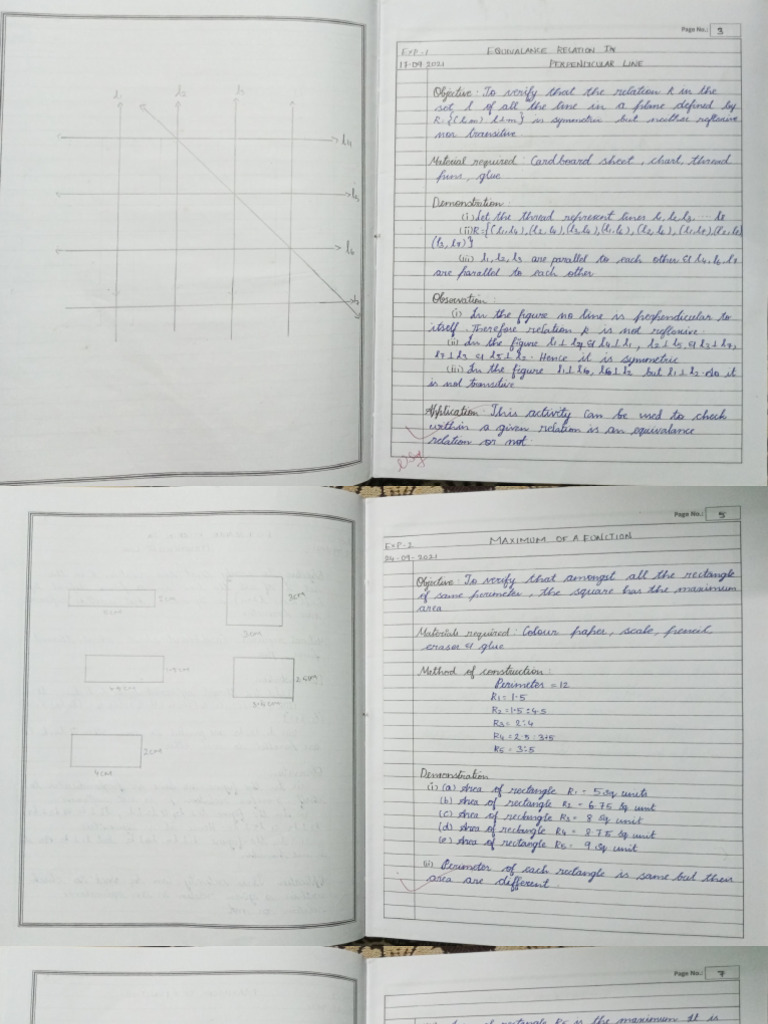 l1
l2
l3
l4
l4
Page No.: 3
EXP-1 EQUIVALANCE RELATION IN
17-09-2021 PERPENDICULAR LINE
Objective: To verify that the relation R in the
set l of all the line in a plane defined by
R={(l,m) l⊥m} is symmetric but neither reflexive
nor transitive.
Material required: Cardboard sheet, chart, thread
glue
Demonstration:
(i) Let the thread represent lines l1, l2, l3 ... l8
(ii) R={(l1,l4),(l2,l4),(l3,l4),
(l3,l7)}
(iii) l1, l2, l3 are parallel to each other & l4, l6, l7
are parallel to each other
Observation:
(i) In the figure no line is perpendicular to
itself. Therefore relation R is not reflexive.
(ii) In the figure
Hence it is symmetric
(iii) In the figure l1⊥l6, l6⊥l2 but so it
is not transitive
Application: This activity can be used to check
within a given relation is an equivalance
relation or not.
2cm
3cm
3cm
2cm
4cm
Page No.: 5
EXP-2 MAXIMUM OF A FUNCTION
24-09-2021
Objective: To verify that amongst all the rectangle
of same perimeter, the square has the maximum
area
Materials required: Colour paper, scale, pencil
eraser & glue
Method of construction:
Perimeter = 12
R1= 1·5
R2 = 1·5 : 4·5
R3 = 2:4
R4 = 2·5 : 3·5
R5 = 3:5
Demonstration
(i) (a) Area of rectangle R1 = 5 sq units
(b) Area of rectangle R2 = 6.75 sq unit
(c) Area of rectangle R3 = 8 sq unit
(d) Area of rectangle R4 = 8.75 sq unit
(e) Area of rectangle R5 = 9 sq unit
(ii) Perimeter of each rectangle is same but their
area are different.
Page No.: 7
of rectangle R5 is the maximum. It is